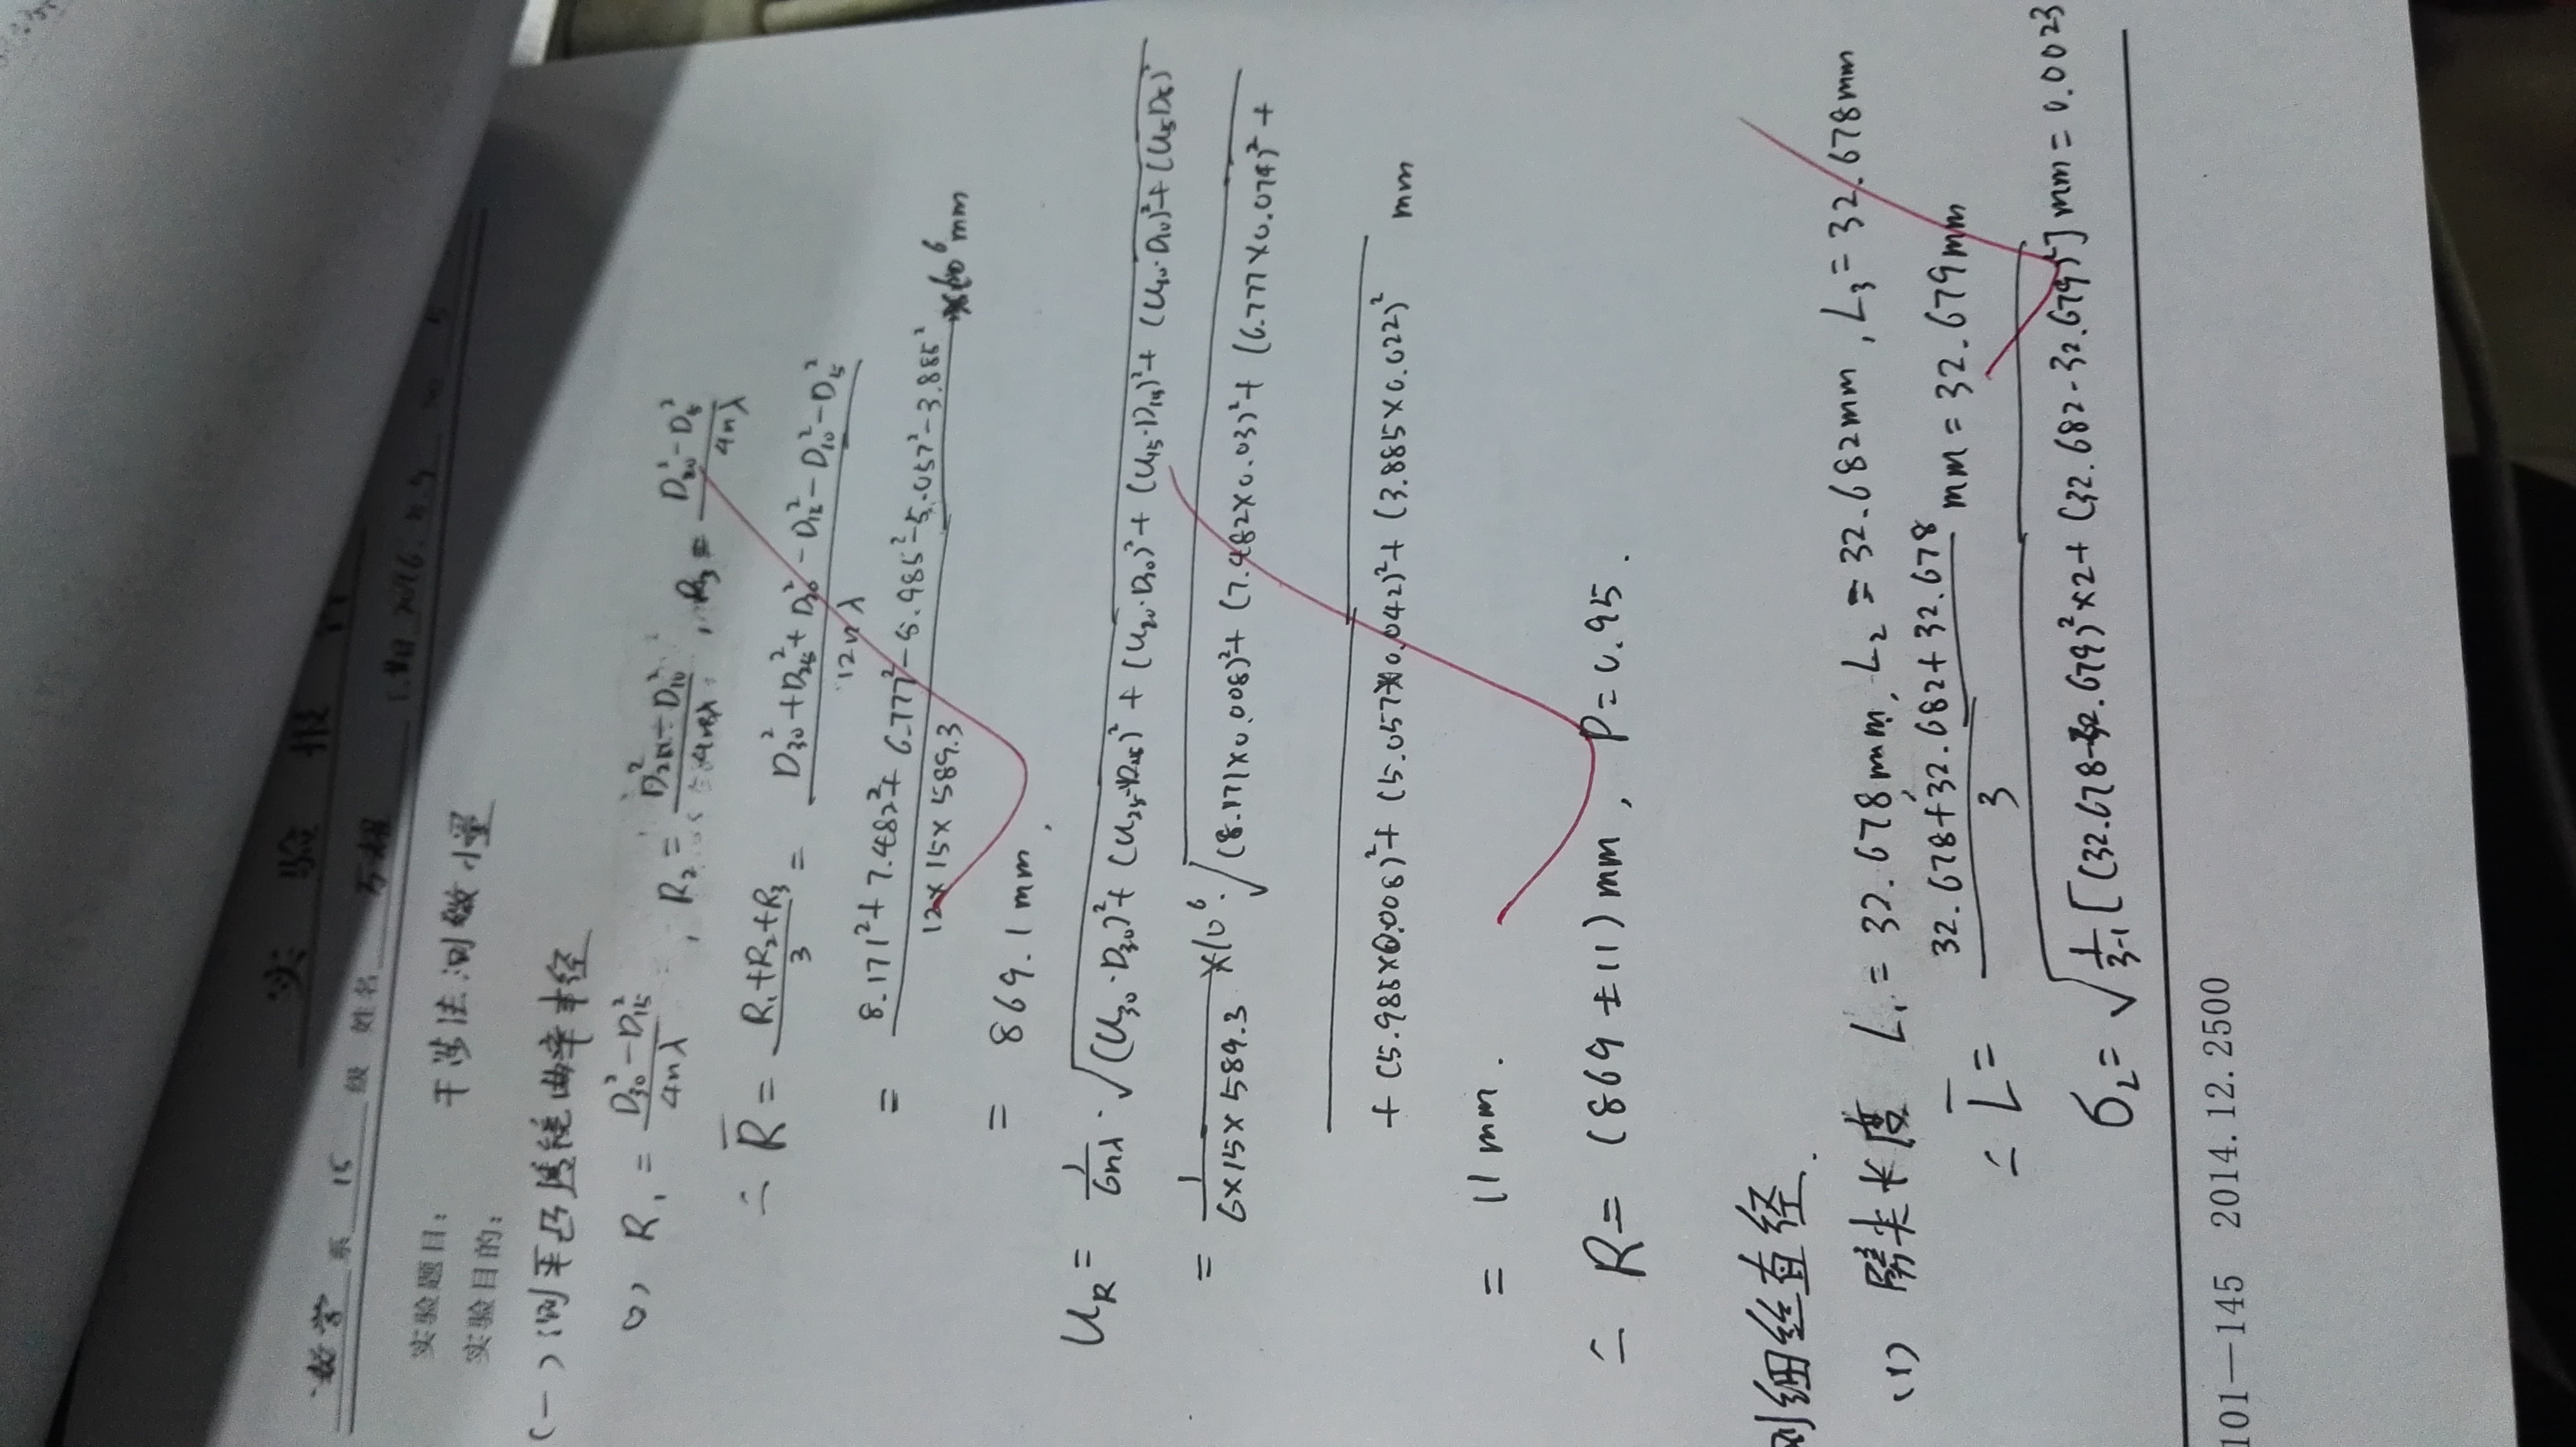 实 验 报 告
数学 系 15 级 姓名 日期 2016.5.9
实验题目: 干涉法测微小量
实验目的:
(一) 测平凸透镜曲率半径
(1) R₁ = (D₃₀² - D₁₅²)/(4nλ), R₂ = (D₂₅² - D₁₀²)/(4nλ), R₃ = (D₂₀² - D₅²)/(4nλ)
∴ R̄ = (R₁+R₂+R₃)/3 = (D₃₀² + D₂₅² + D₂₀² - D₁₅² - D₁₀² - D₅²)/(12nλ)
= (8.171² + 7.482² + 6.777² - 5.985² - 5.057² - 3.885²)/(12×15×589.3) ×10⁶ mm
= 869.1mm.
U_R = 1/(6nλ) · √((U₃₀·D₃₀)² + (U₂₅·D₂₅)² + (U₂₀·D₂₀)² + (U₁₅·D₁₅)² + (U₁₀·D₁₀)² + (U₅D₅)²)
= 1/(6×15×589.3) ×10⁶ · √((8.171×0.008)² + (7.482×0.03)² + (6.777×0.074)² +
+ (5.985×0.008)² + (5.057×0.042)² + (3.885×0.022)² mm
= 11mm.
∴ R = (869 ± 11) mm, P = 0.95.
测细丝直径.
(1) 劈尖长度 L₁ = 32.678mm, L₂ = 32.682mm, L₃ = 32.678mm
∴ L̄ = (32.678+32.682+32.678)/3 mm = 32.679mm
σ_L = √(1/(3-1) [(32.678-32.679)²×2 + (32.682-32.679)²] mm = 0.0023
101—145 2014.12.2500